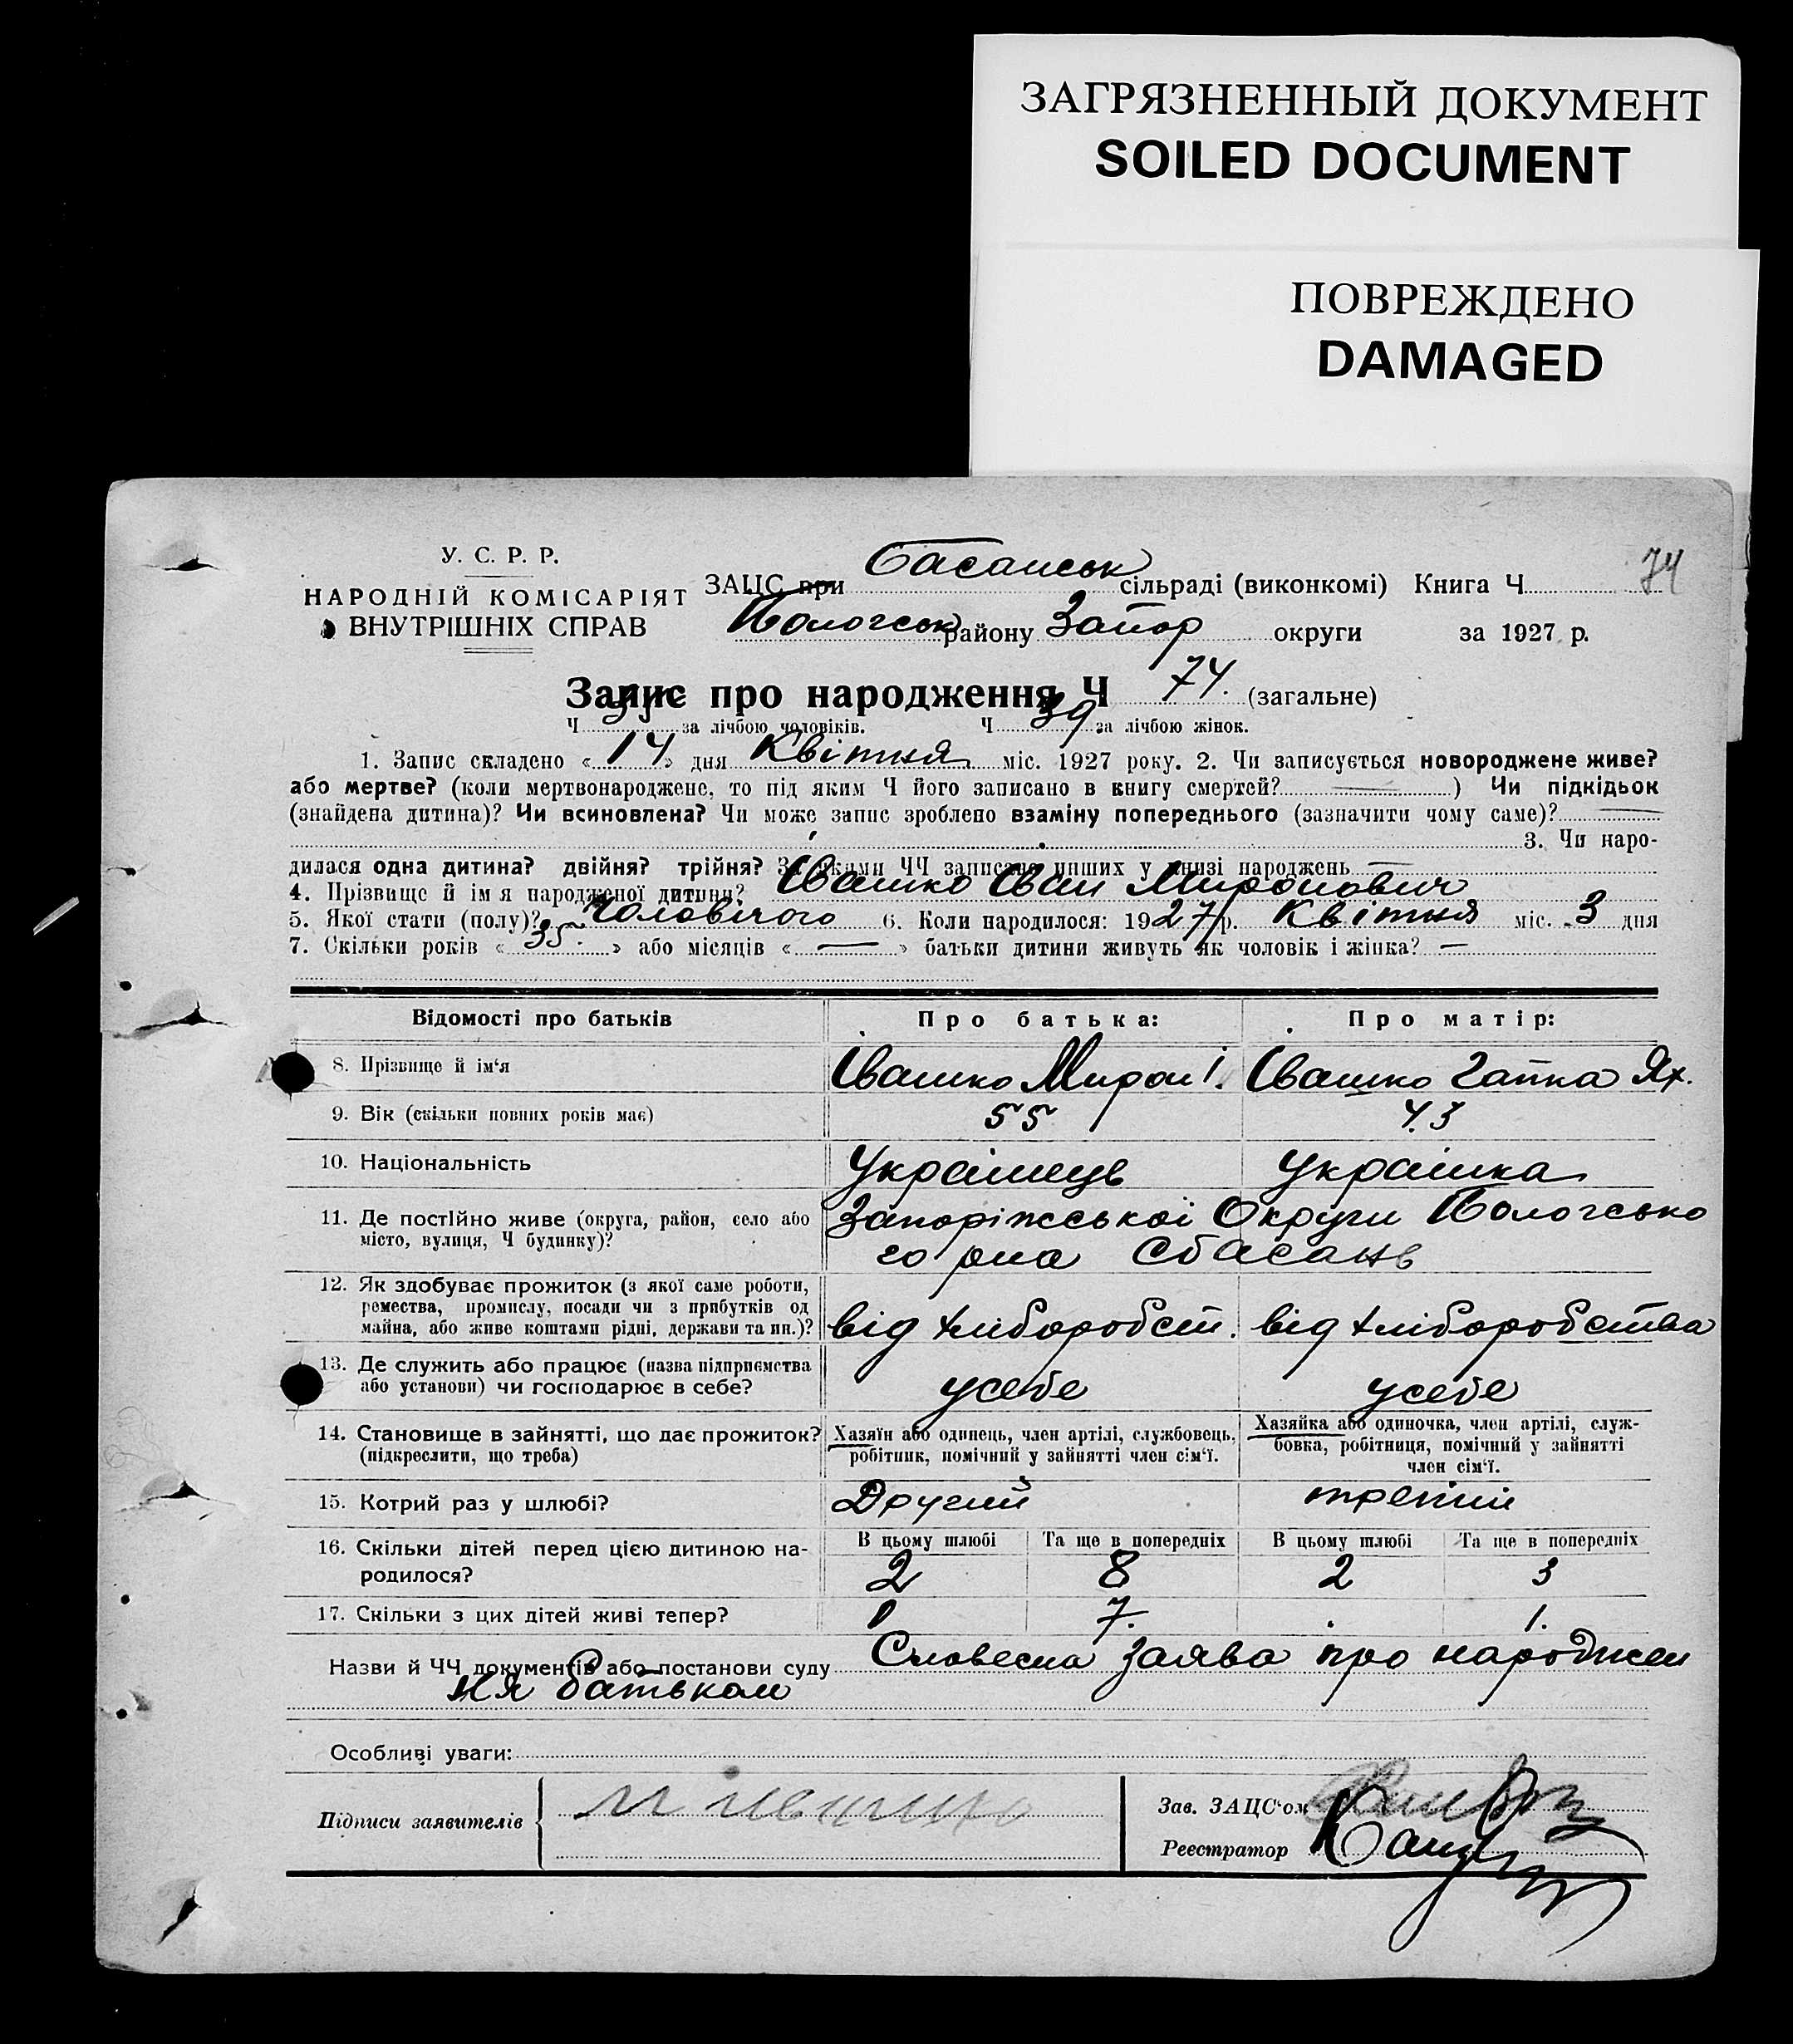 ЗАГРЯЗНЕННЫЙ ДОКУМЕНТ
SOILED DOCUMENT
ПОВРЕЖДЕНО
DAMAGED
74
У. С. Р. Р.
НАРОДНІЙ КОМІСАРІЯТ
ВНУТРІШНІХ СПРАВ
ЗАЦС при Басанськ сільраді (виконкомі) Книга Ч
Пологськ району Запор округи за 1927 р.
Запис про народження Ч 74. (загальне)
Ч 35 за лічбою чоловіків. Ч 39 за лічбою жінок.
1. Запис складено «14» дня Квітня міс. 1927 року. 2. Чи записується новороджене живе?
або мертве? (коли мертвонароджене, то під яким Ч його записано в книгу смертей? — ) Чи підкідьок
(знайдена дитина)? Чи всиновлена? Чи може запис зроблено взаміну попереднього (зазначити чому саме)? —
3. Чи наро-
дилася одна дитина? двійня? трійня? За якими ЧЧ записано инших у книзі народжень —
4. Прізвище й ім я народженої дитини? Івашко Іван Миронович
5. Якої стати (полу)? Чоловічого 6. Коли народилося: 1927 р. Квітня міс. 3 дня
7. Скільки років « 35. » або місяців « — » батьки дитини живуть як чоловік і жінка? —
Відомості про батьків Про батька: Про матір:
8. Прізвище й ім‘я Івашко Мирон І. Івашко Гапка Ях.
9. Вік (скільки повних років має) 55 43
10. Національність Українець Українка
11. Де постійно живе (округа, район, село або Запоріжської Округи Пологсько
місто, вулиця, Ч будинку)? го рна с Басань
12. Як здобуває прожиток (з якої саме роботи,
ремества, промислу, посади чи з прибутків од
майна, або живе коштами рідні, держави та ин.)? від хліборобст. від хліборобства
13. Де служить або працює (назва підприємства
або установи) чи господарює в себе? усебе усебе
14. Становище в зайнятті, що дає прожиток? Хазяїн або одинець, член артілі, службовець, Хазяйка або одиночка, член артілі, служ-
(підкреслити, що треба) робітник, помічний у зайнятті член сім‘ї. бовка, робітниця, помічний у зайнятті
член сім‘ї.
15. Котрий раз у шлюбі? Другий третий
16. Скільки дітей перед цією дитиною на- В цьому шлюбі Та ще в попередніх В цьому шлюбі Та ще в попередніх
родилося? 2 8 2 3
17. Скільки з цих дітей живі тепер? 7. 1.
Назви й ЧЧ документів або постанови суду Словесна заява про народжен
ня батьком
Особливі уваги:
Підписи заявителів
Зав. ЗАЦС‘ом
Реєстратор